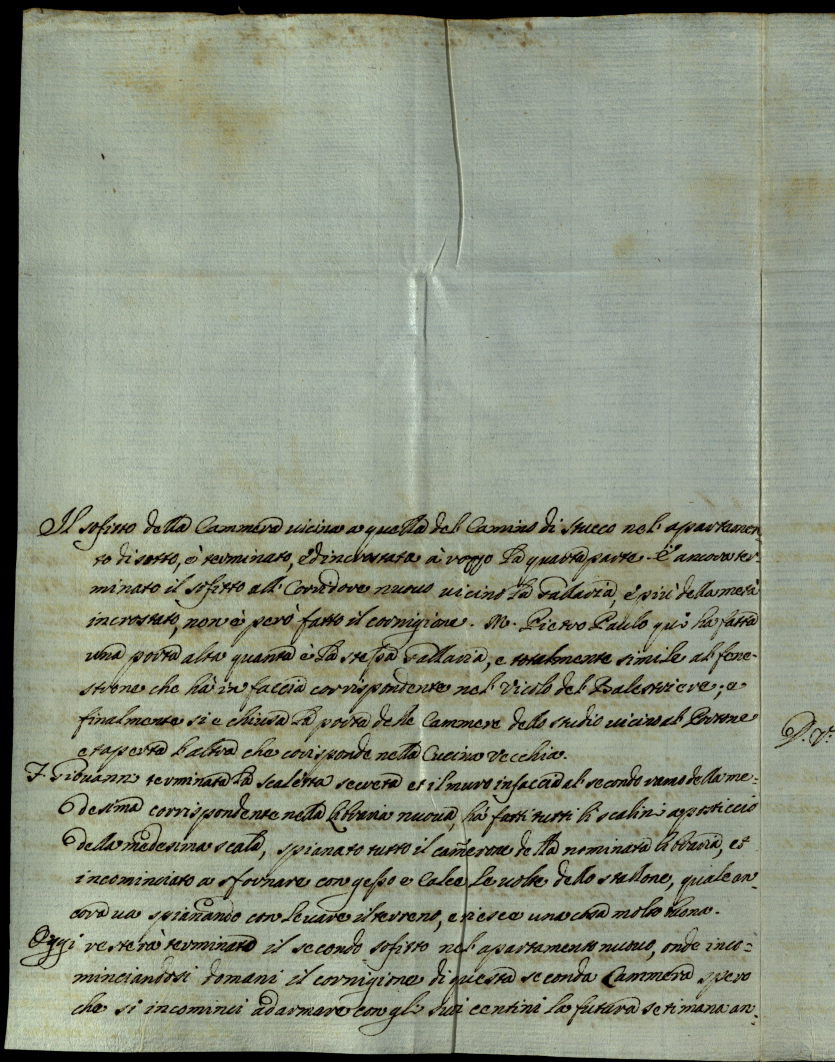 Il sofitto della Cammera uicina a quella del Camino di stucco nel apartamen-
to di sotto, è terminato, ed incrostata à rozzo la quarta parte. È ancora ter-
minato il sofitto all Corridore nuouo uicino la Gallaria, è più della metà
incrostato, non è però fatto il cornigione. M. Pietro Paulo qui ha fatta
una porta alta quanta è la stessa Gallaria, e totalmente simile al fene-
strone che hà in faccia corrispondente nel Vicolo del Balestriere; e
finalmente si è chiusa la porta delle Cammere dello studio uicino al Portone
et aperta l'altra che corisponde nella Cucina vecchia.
F. Giouanni terminata la scaletta secreta et il muro in faccia al secondo ramo della me-
desima corrispondente nella libraria nuoua, hà fatti tutti li scalini aposticcio
della medesima scala, spianato tutto il camerone della nominata libraria, et
incominciato a sfornare con gesso e Calce le uolte dello stallone, quale an-
cora ua spianando con leuare il terreno, e riesce una cosa molto buona.
Oggi resterà terminato il secondo sofitto nel apartamento nuouo, onde inco-
minciandosi domani il cornigione di questa seconda Cammera spero
che si incominci ad armare con gli suoi centini la futura setimana an-
D. V.